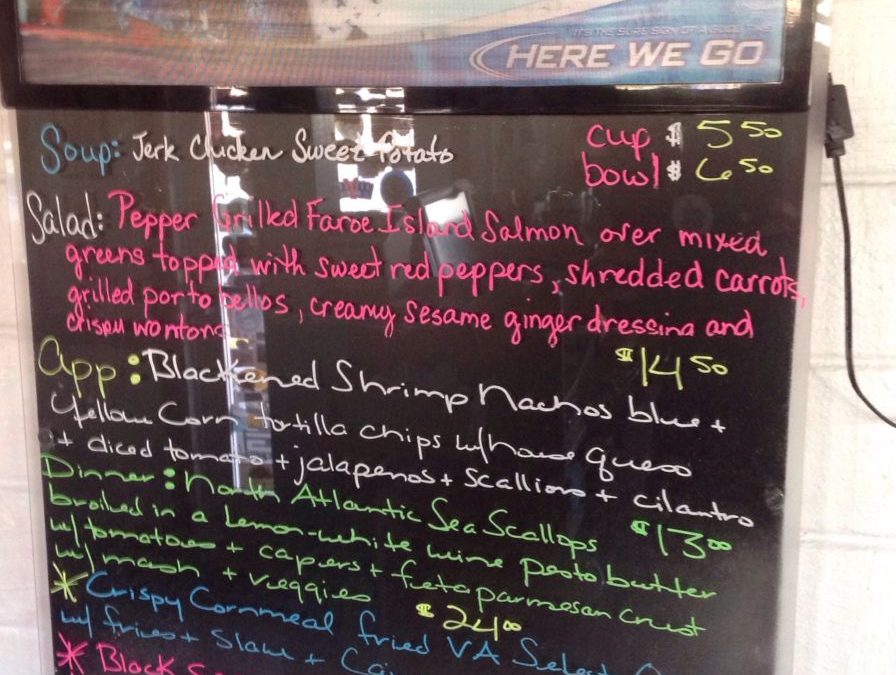 IT'S THE SURE SIGN OF A GOOD TIME
HERE WE GO
Soup: Jerk Chicken Sweet Potato
cup $ 5 50
bowl $ 6 50
Salad: Pepper Grilled Faroe Island Salmon over mixed
greens topped with sweet red peppers, shredded carrots,
grilled portobellos, creamy sesame ginger dressing and
crispy wontons
$14 50
App: Blackened Shrimp Nachos blue +
yellow corn tortilla chips w/house queso
+ diced tomato + jalapenos + scallions + cilantro
$13 00
Dinner: North Atlantic Sea Scallops
broiled in a lemon-white wine pesto butter
w/ tomatoes + capers + feta parmesan crust
w/ mash + veggies $24 00
* Crispy Cornmeal fried VA Select
w/ fries + Slaw +
* Black